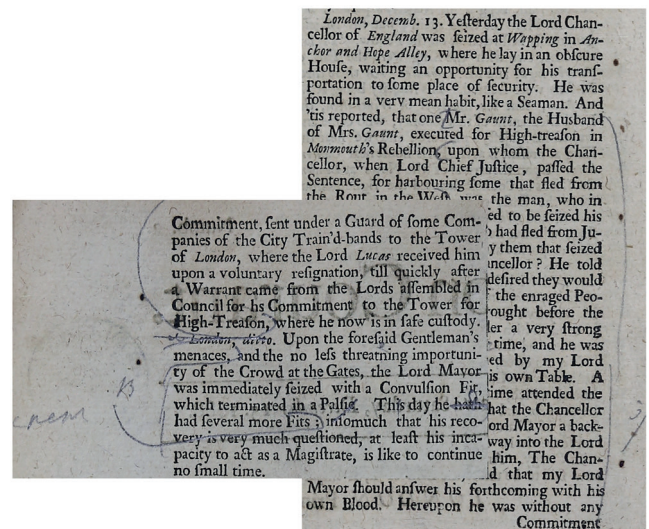 London, Decemb. 13. Yeſterday the Lord Chan-
cellor of England was ſeized at Wapping in An-
chor and Hope Alley, where he lay in an obſcure
Houſe, waiting an opportunity for his tranſ-
portation to ſome place of ſecurity. He was
found in a very mean habit, like a Seaman. And
'tis reported, that one Mr. Gaunt, the Husband
of Mrs. Gaunt, executed for High-treaſon in
Monmouth's Rebellion, upon whom the Chan-
cellor, when Lord Chief Juſtice, paſſed the
Sentence, for harbouring ſome that fled from
the Rout in the Weſt, was the man, who in
to be ſeized his
had fled from Ju-
them that ſeized
? He told
deſired they would
the enraged Peo-
before the
a very ſtrong
time, and he was
by my Lord
own Table. A
attended the
the Chancellor
Mayor a back-
way into the Lord
him, The Chan-
that my Lord
Mayor ſhould anſwer his forthcoming with his
own Blood. Hereupon he was without any
Commitment
Commitment, ſent under a Guard of ſome Com-
panies of the City Train'd-bands to the Tower
of London, where the Lord Lucas received him
upon a voluntary reſignation, till quickly after
a Warrant came from the Lords aſſembled in
Council for hs Commitment to the Tower for
High-Treaſon, where he now is in ſafe cuſtody.
London, ditto. Upon the foreſaid Gentleman's
menaces, and the no leſs threatning importuni-
ty of the Crowd at the Gates, the Lord Mayor
was immediately ſeized with a Convulſion Fit,
which terminated in a Palſie. This day he hath
had ſeveral more Fits ; inſomuch that his reco-
very is very much queſtioned, at leaſt his inca-
pacity to act as a Magiſtrate, is like to continue
no ſmall time.